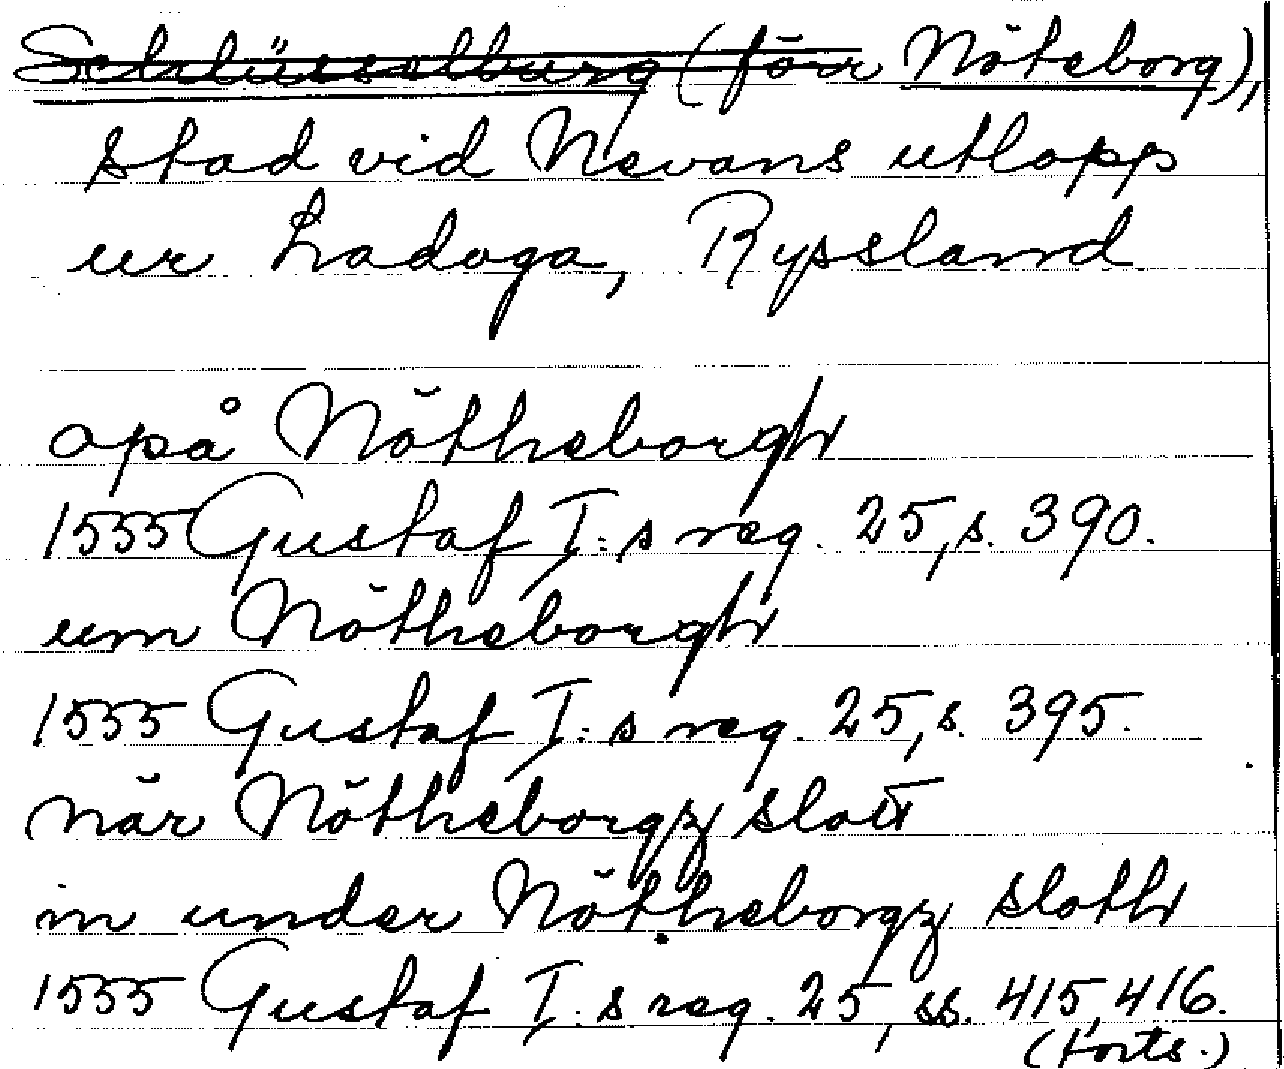 Schlüsselburg (förr Nöteborg),
stad vid Nevans utlopp
ur Ladoga, Ryssland
opå Nötheborgh
1555 Gustaf I:s reg. 25, s. 390.
um Nötheborgh
1555 Gustaf I:s reg. 25, s. 395.
när Nötheborgz slott
in under Nötheborgz sloth
1555 Gustaf I:s reg. 25, ss. 415, 416.
(forts.)